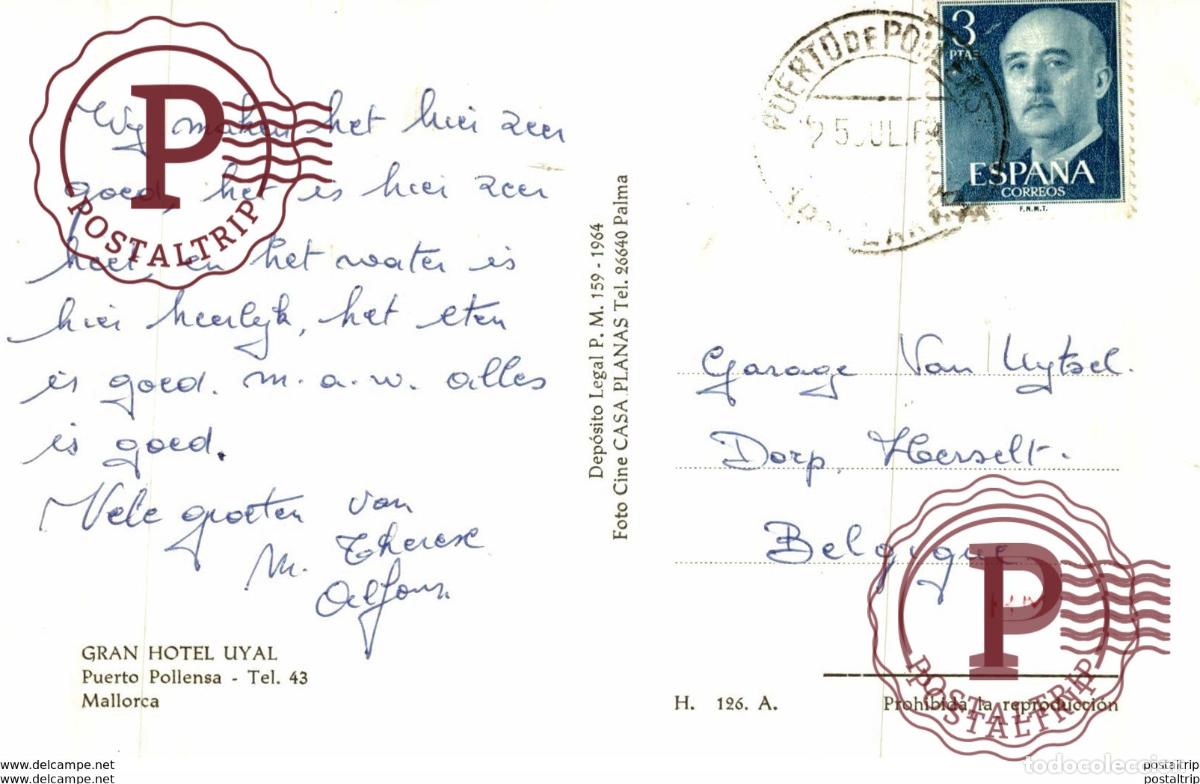 Wij maken het hier zeer
goed, het is hier zeer
heet, en het water is
hier heerlijk, het eten
is goed. m.a.w. alles
is goed.
Vele groeten van
M. Therese
Alfons.
GRAN HOTEL UYAL
Puerto Pollensa - Tel. 43
Mallorca
Depósito Legal P. M. 159 - 1964
Foto Cine CASA PLANAS Tel. 26640 Palma
PUERTO DE
25 JUL.
3
PTAS
ESPAÑA
CORREOS
F.N.M.T.
Garage Van Uytsel.
Dorp, Herselt.
Belgique
H. 126. A.
Prohibida la reproducción
P
POSTALTRIP
P
POSTALTRIP
www.todocoleccion.net/tienda/postaltrip
www.todocoleccion.net/tienda/postaltrip
todocoleccion
postaltrip
postaltrip